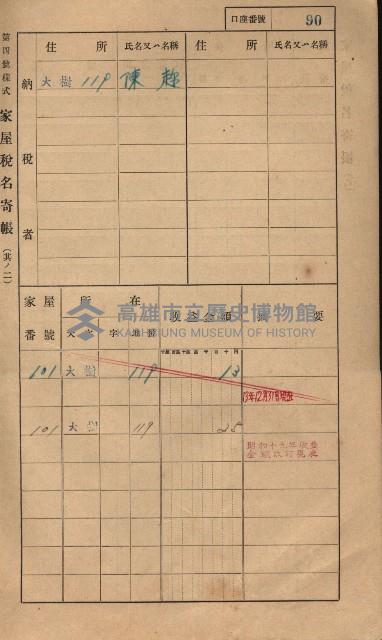 口座番號 90
第四號樣式 家屋稅名寄帳 (其ノ二)
納稅者
住所 氏名又ハ名稱 住所 氏名又ハ名稱
大樹 119 陳
家屋番號 所在 收益金額 摘要
大字 字 地番
十億千百十萬千百十円
101 大樹 119 13
101 大樹 119 25
昭和十九年收益
金額改訂
高雄市立歷史博物館
KAOHSIUNG MUSEUM OF HISTORY